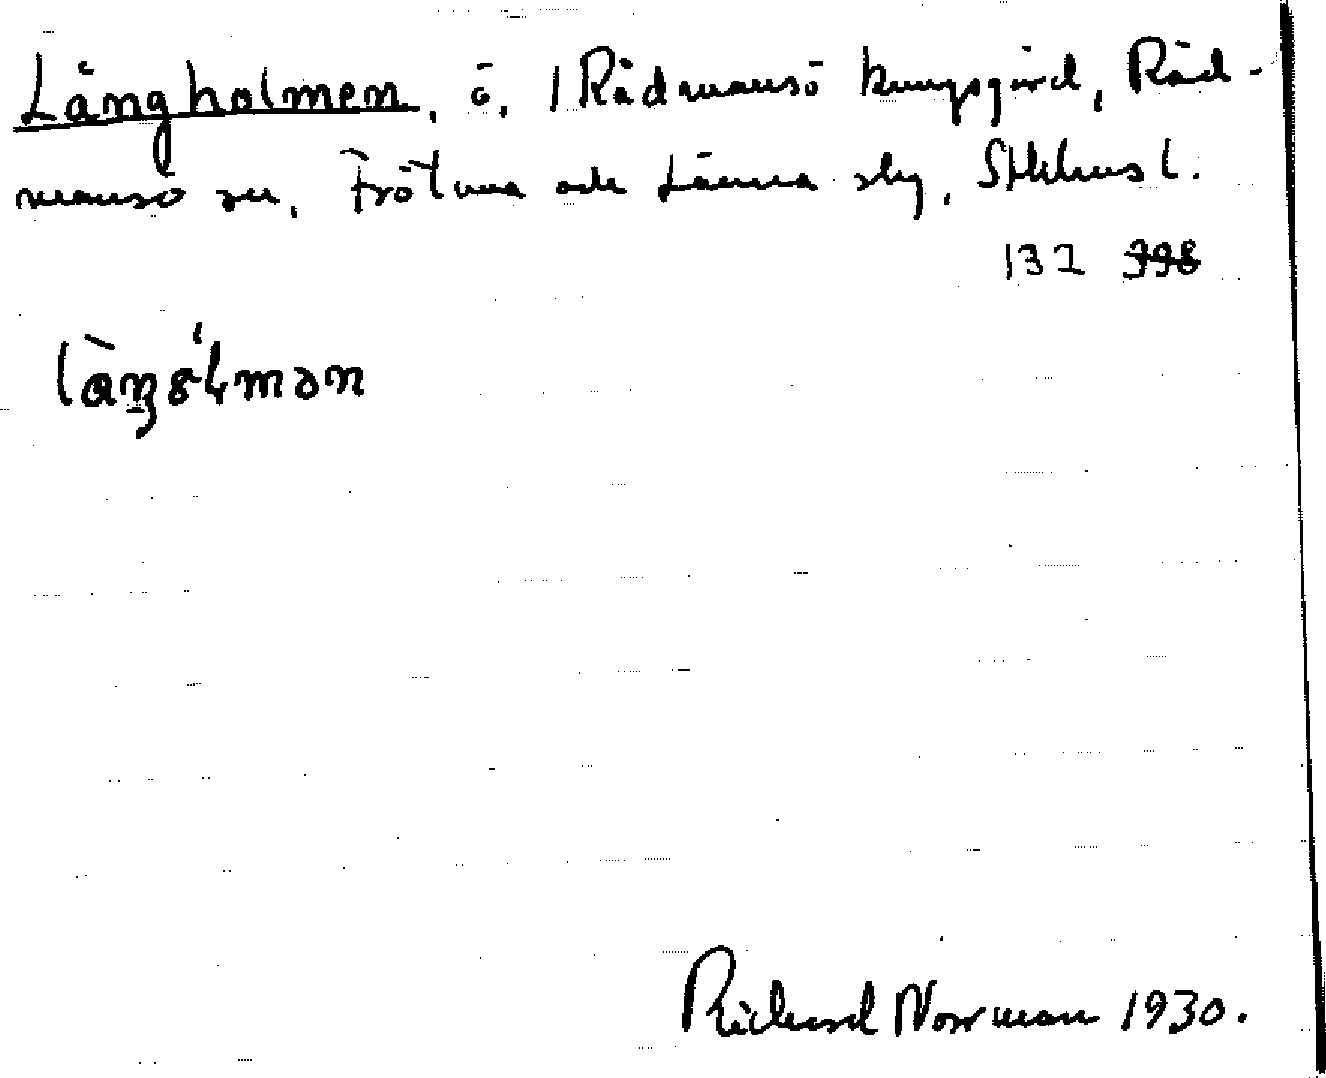 Långholmen, ö, i Rådmansö kungsgård, Råd-
mansö sn, Frötuna och Länna slg, Sthlms l.
132
Richard Norrman 1930.